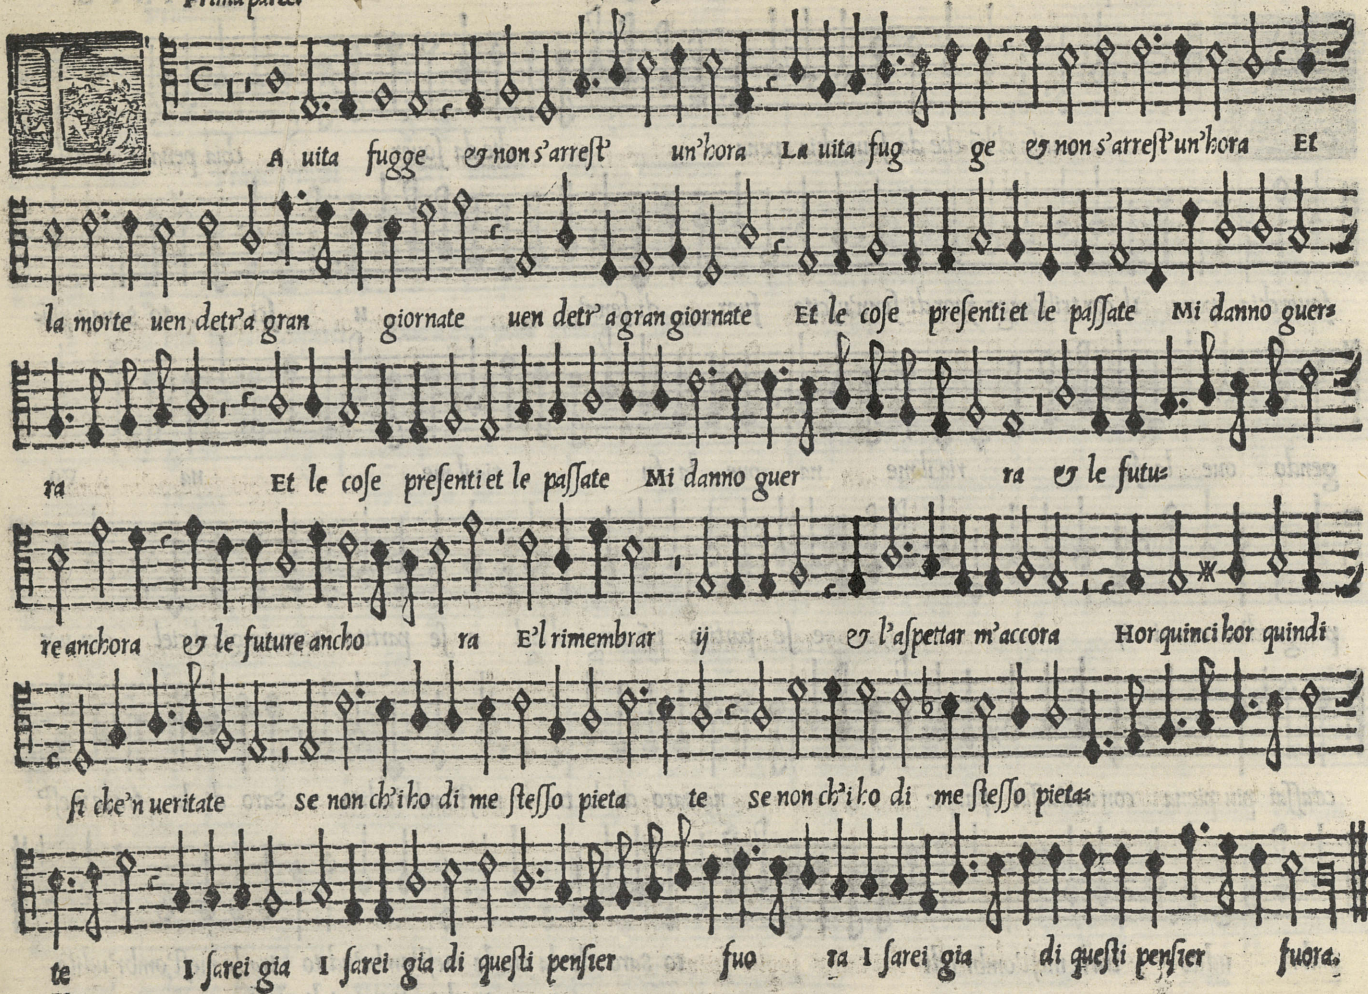 Prima parte.
L A uita fugge & non s'arrest' un'hora La uita fug ge & non s'arrest'un'hora Et
la morte uen detr'a gran giornate uen detr'a gran giornate Et le cose presenti et le passate Mi danno guer=
ra Et le cose presenti et le passate Mi danno guer ra & le futu=
re anchora & le future ancho ra E'l rimembrar ij & l'aspettar m'accora Hor quinci hor quindi
si che'n ueritate se non ch'i ho di me stesso pieta te se non ch'i ho di me stesso pieta=
te I sarei gia I sarei gia di questi pensier fuo ra I sarei gia di questi pensier fuora.